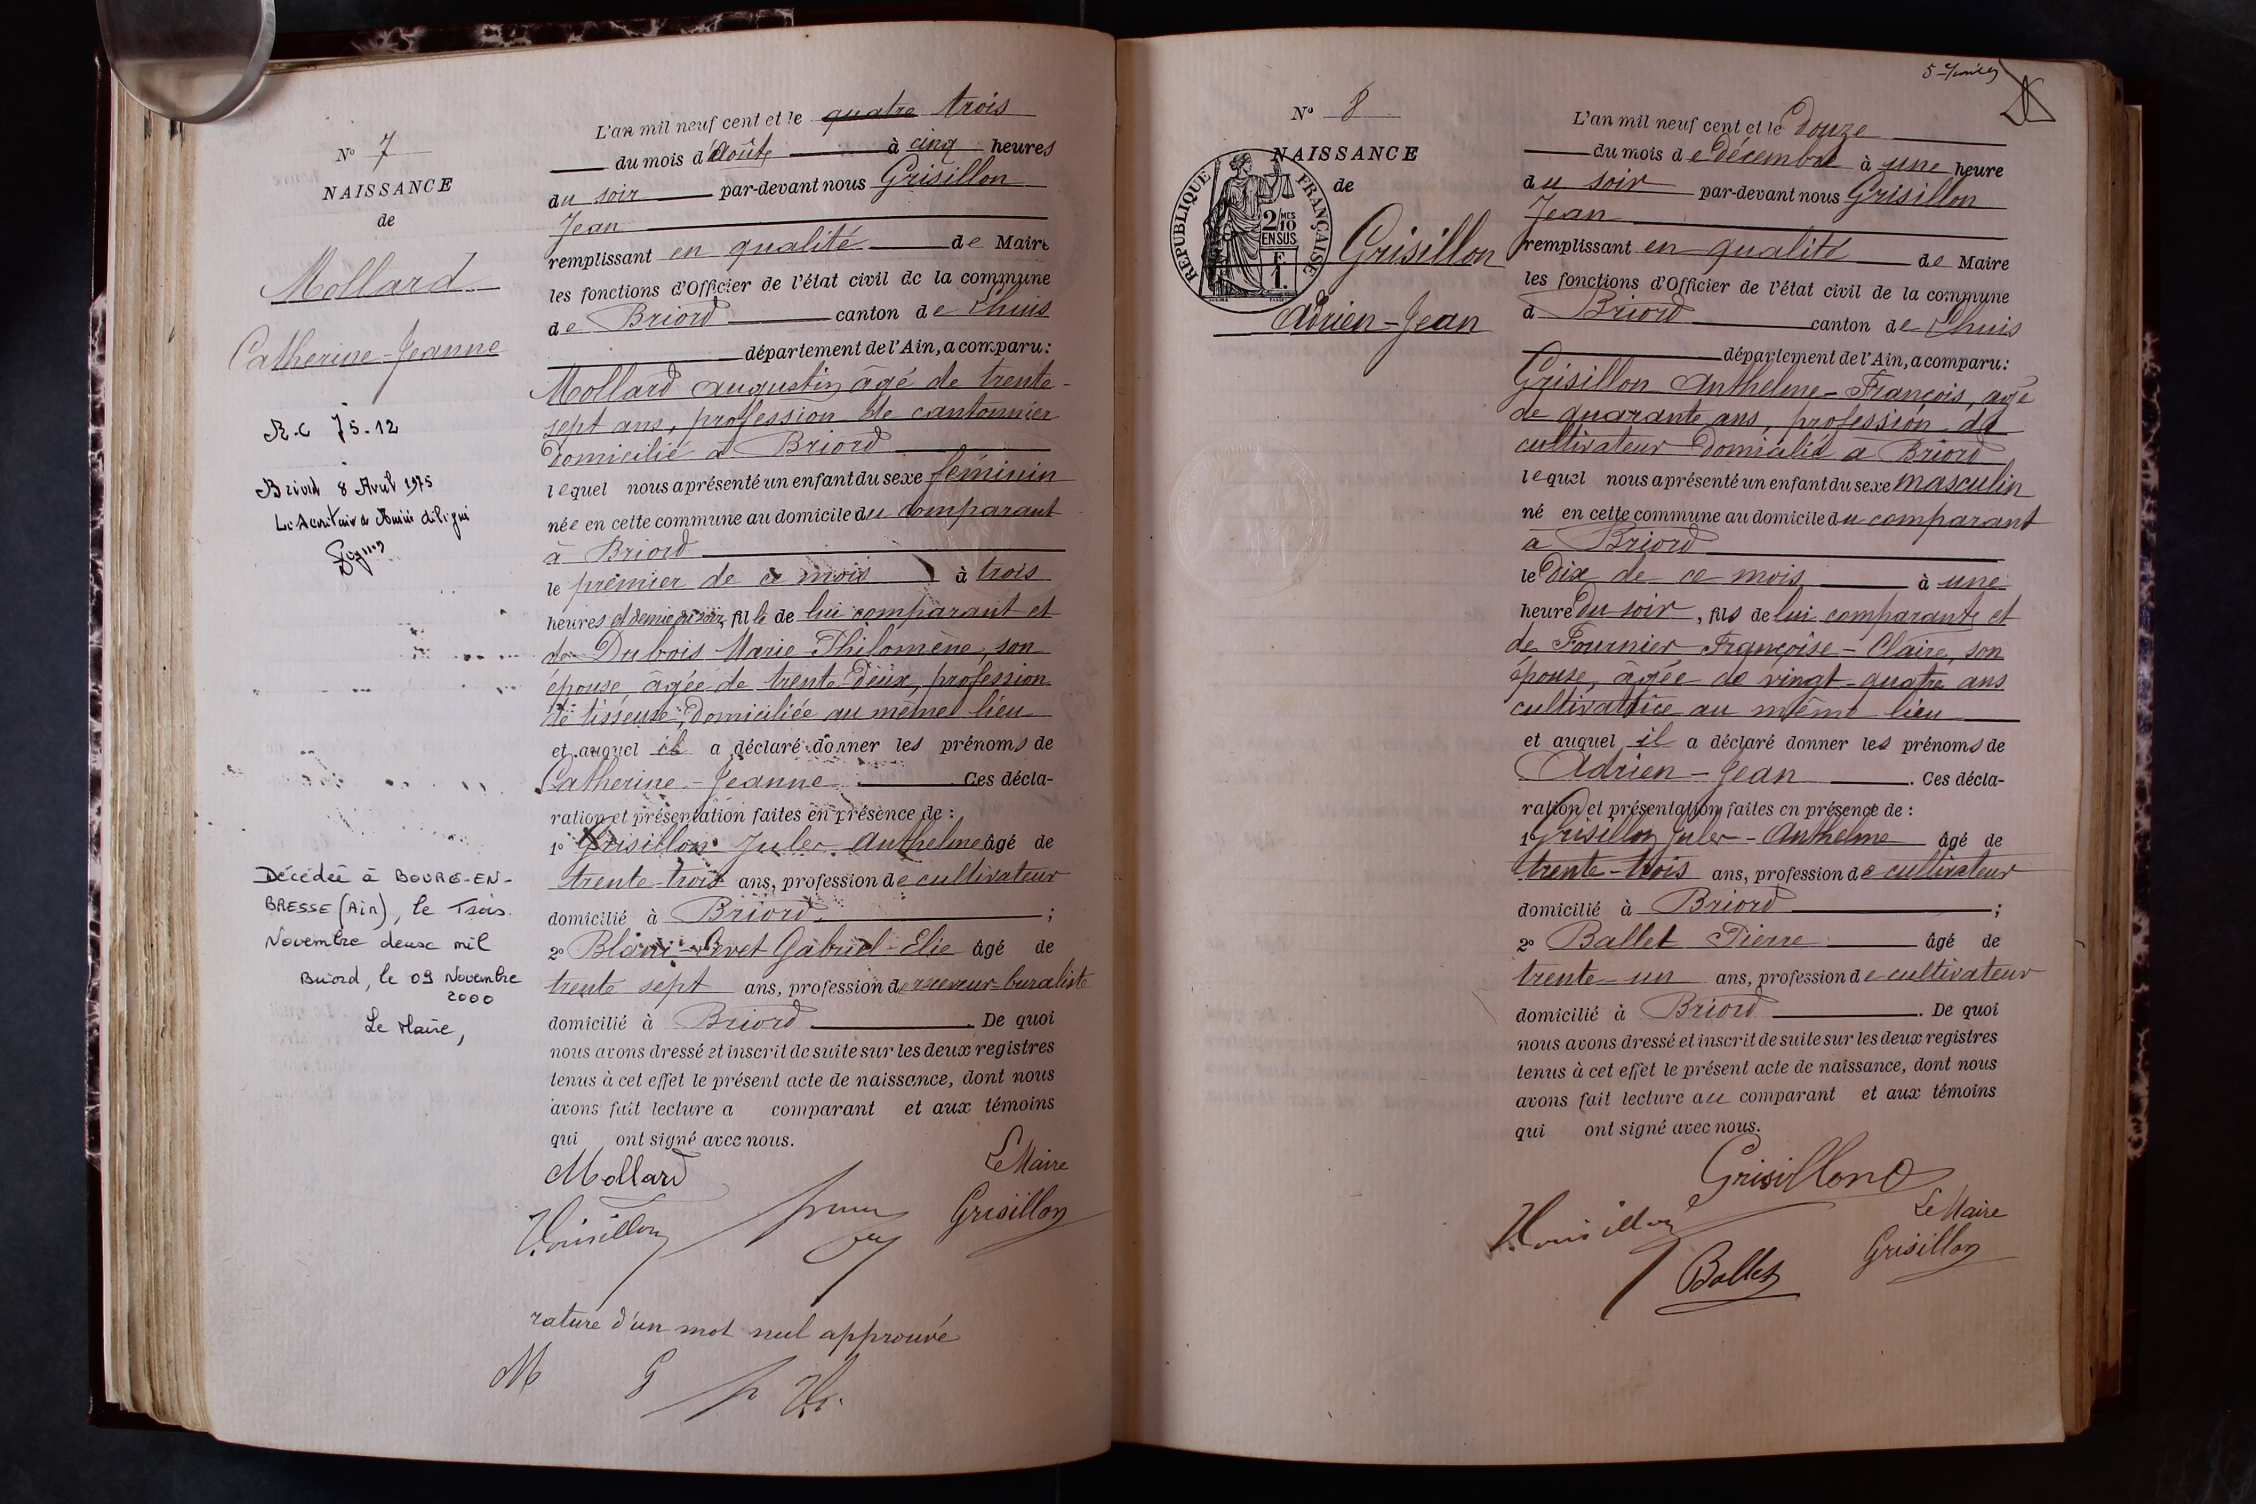 N° 7
NAISSANCE
de
Mollard
Catherine-Jeanne
R.C 75-12
Briord 8 Avril 1975
Décédée à BOURG-EN-
BRESSE (Ain), le Trois
Novembre deux mil
Briord, le 09 Novembre
2000
Le Maire,
L'an mil neuf cent et le quatre trois
du mois d'Août à cinq heures
du soir par-devant nous Grisillon
Jean
remplissant en qualité de Maire
les fonctions d'Officier de l'état civil de la commune
de Briord canton de Lhuis
département de l'Ain, a comparu:
Mollard Augustin âgé de trente-
sept ans, proffession de cantonnier
domicilié à Briord
lequel nous a présenté un enfant du sexe féminin
née en cette commune au domicile du comparant
à Briord
le premier de ce mois à trois
heures et demie du soir, fille de lui comparant et
de Dubois Marie-Philomène, son
épouse, âgée de trente-deux, profession
de tisseuse, domiciliée au même lieu
et auquel il a déclaré donner les prénoms de
Catherine-Jeanne Ces décla-
ration et présentation faites en présence de :
1° Grisillon Jules Anthelme âgé de
trente-trois ans, profession de cultivateur
domicilié à Briord ;
2° Gabriel-Elie âgé de
trente sept ans, profession de receveur-buraliste
domicilié à Briord. De quoi
nous avons dressé et inscrit de suite sur les deux registres
tenus à cet effet le présent acte de naissance, dont nous
avons fait lecture a comparant et aux témoins
qui ont signé avec nous.
Mollard
Le Maire
Grisillon
rature d'un mot nul approuvé
M G
5e Février
N° 8
NAISSANCE
de
RÉPUBLIQUE FRANÇAISE
2/10 MES
EN SUS
F
1.
Grisillon
Adrien-Jean
L'an mil neuf cent et le douze
du mois de Décembre à une heure
du soir par-devant nous Grisillon
Jean
remplissant en qualité de Maire
les fonctions d'Officier de l'état civil de la commune
d Briord canton de Lhuis
département de l'Ain, a comparu:
Grisillon Anthelme-François, âgé
de quarante ans, profession de
cultivateur domicilié à Briord
lequel nous a présenté un enfant du sexe masculin
né en cette commune au domicile du comparant
à Briord
le dix de ce mois à une
heure du soir, fils de lui comparant et
de Fournier Françoise-Claire, son
épouse, âgée de vingt-quatre ans
cultivatrice au même lieu
et auquel il a déclaré donner les prénoms de
Adrien-Jean. Ces décla-
ration et présentation faites en présence de :
1° Grisillon Jules-Anthelme âgé de
trente-trois ans, profession de cultivateur
domicilié à Briord ;
2° Ballet Pierre âgé de
trente-un ans, profession de cultivateur
domicilié à Briord. De quoi
nous avons dressé et inscrit de suite sur les deux registres
tenus à cet effet le présent acte de naissance, dont nous
avons fait lecture au comparant et aux témoins
qui ont signé avec nous.
Grisillon
Le Maire
Grisillon
Ballet